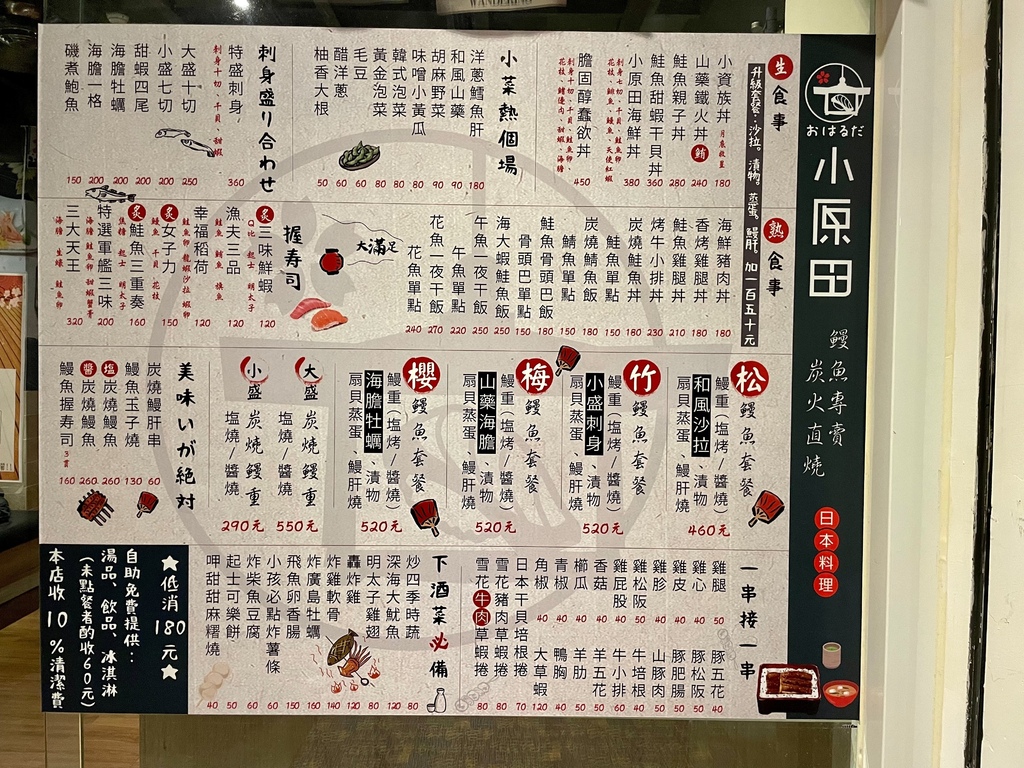 おはるだ
小原田
鰻魚專賣
炭火直燒
日本料理
生食事
升級套餐：沙拉。漬物。蒸蛋。鰻肝。加一百五十元
小資族丼 180
山藥鐵火丼 鮪 240
鮭魚親子丼 280
鮭魚甜蝦干貝丼 360
小原田海鮮丼 380
膽固醇蠢欲丼 450
小菜熱個場
洋蔥鱈魚肝 180
和風山藥 90
胡麻野菜 90
味噌小黃瓜 80
韓式泡菜 80
黃金泡菜 80
毛豆 60
醋洋蔥 60
柚香大根 50
刺身盛り合わせ
特盛刺身 360
刺身十切、干貝、甜蝦
大盛十切 250
小盛七切 200
甜蝦四尾 200
海膽牡蠣 200
海膽一格 200
磯煮鮑魚 150
熱食事
海鮮豬肉丼 180
香烤雞腿丼 180
鮭魚雞腿丼 210
烤牛小排丼 230
炭燒鮭魚丼 180
鮭魚單點 150
炭燒鯖魚飯 180
鯖魚單點 150
鮭魚骨頭巴飯 180
骨頭巴單點 150
海大蝦鮭魚飯 250
午魚一夜干飯 250
午魚單點 220
花魚一夜干飯 270
花魚單點 240
大滿足
握壽司
炙 三味鮮蝦 120
漁夫三品 120
鮭魚 鮪魚 旗魚
幸福稻荷 120
炙 女子力 150
鰻魚 干貝 花枝
炙 鮭魚三重奏 160
焦糖 起士 明太子
特選軍艦三味 200
三大天王 320
海膽 生蠔 鮭魚卵
松 鰻魚套餐
鰻重(塩烤/醬燒)
和風沙拉、漬物
扇貝蒸蛋、鰻肝燒
460元
竹 鰻魚套餐
鰻重(塩烤/醬燒)
小盛刺身、漬物
扇貝蒸蛋、鰻肝燒
520元
梅 鰻魚套餐
鰻重(塩烤/醬燒)
山藥海膽、漬物
扇貝蒸蛋、鰻肝燒
520元
櫻 鰻魚套餐
鰻重(塩烤/醬燒)
海膽牡蠣、漬物
扇貝蒸蛋、鰻肝燒
520元
大盛 炭燒鰻重
塩燒/醬燒
550元
小盛 炭燒鰻重
塩燒/醬燒
290元
美味いが絶対
炭燒鰻肝串 60
鰻魚玉子燒 130
塩 炭燒鰻魚 260
醬 炭燒鰻魚 260
鰻魚握壽司 3貫 160
一串接一串
雞腿 50
雞心 40
雞皮 40
雞胗 40
雞松阪 50
雞屁股 40
香菇 40
櫛瓜 40
青椒 40
角椒 40
日本干貝培根捲 70
雪花豬肉草蝦捲 80
雪花牛肉草蝦捲 80
豚五花 40
豚松阪 50
豚肥腸 50
山豚肉 50
牛培根 50
牛小排 60
羊五花 50
羊肋 50
鴨胸 50
大草蝦 120
下酒菜必備
炒四季時蔬 80
深海大魷魚 120
明太子雞翅 80
轟炸雞 120
炸雞軟骨 140
炸廣島牡蠣 160
飛魚卵香腸 150
小孩必點炸薯條 60
炸柴魚豆腐 60
起士可樂餅 50
呷甜甜麻糬燒 40
★低消180元★
自助免費提供：
湯品、飲品、冰淇淋
(未點餐者酌收60元)
本店收10%清潔費